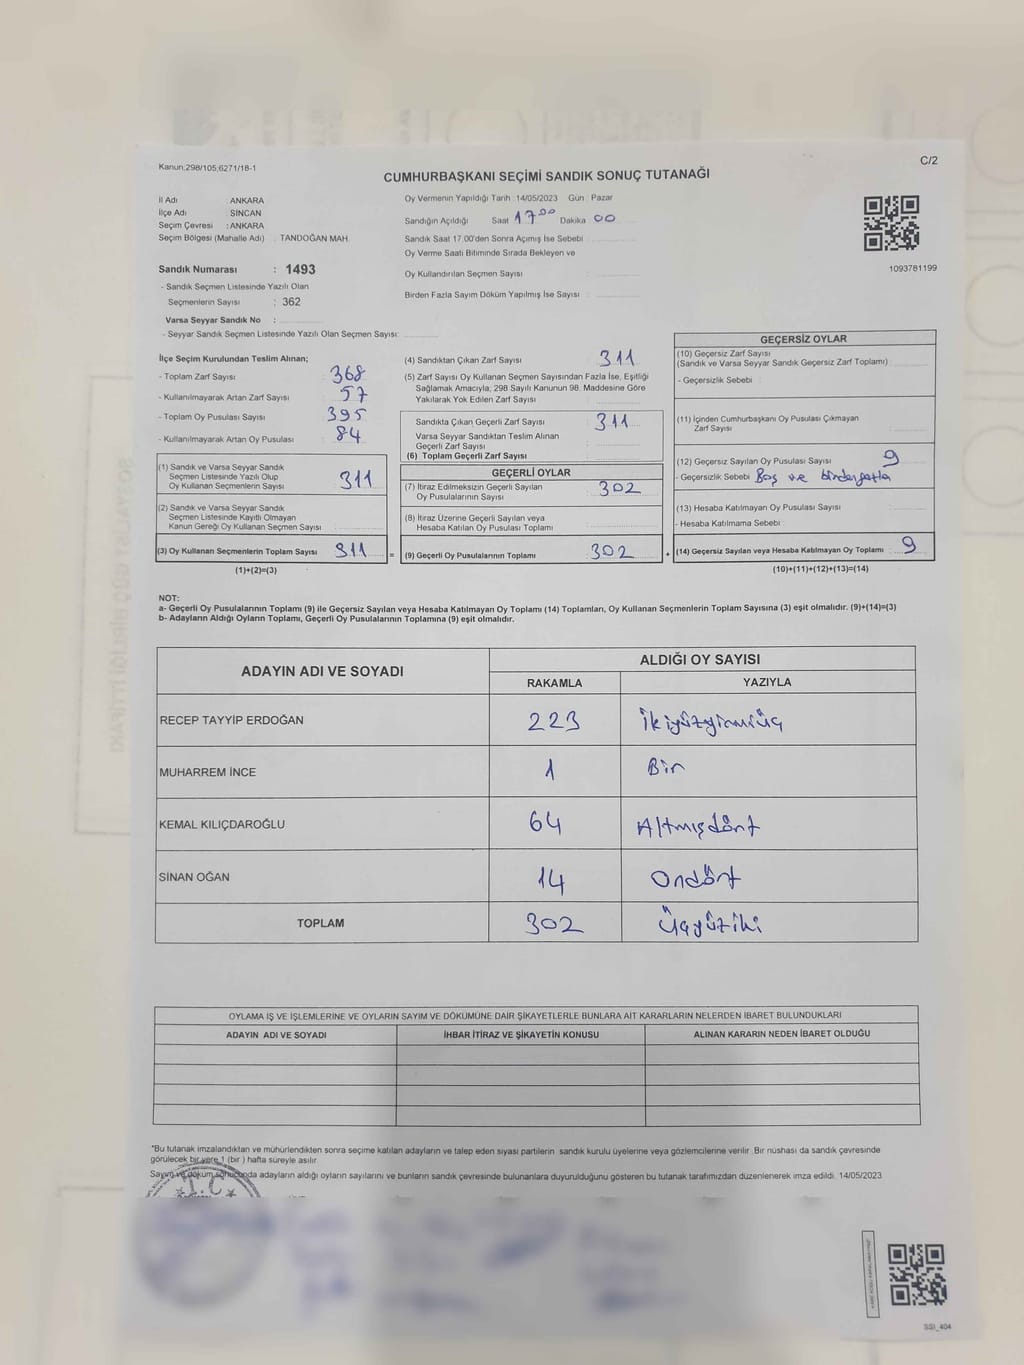 Kanun;298/105;6271/18-1
C/2
CUMHURBAŞKANI SEÇİMİ SANDIK SONUÇ TUTANAĞI
İl Adı : ANKARA
İlçe Adı : SİNCAN
Seçim Çevresi : ANKARA
Seçim Bölgesi (Mahalle Adı) : TANDOĞAN MAH.
Oy Vermenin Yapıldığı Tarih :14/05/2023 Gün : Pazar
Sandığın Açıldığı Saat 17⁰⁰ Dakika 00
Sandık Saat 17.00'den Sonra Açılmış İse Sebebi
Oy Verme Saati Bitiminde Sırada Bekleyen ve
Oy Kullandırılan Seçmen Sayısı :
Birden Fazla Sayım Döküm Yapılmış İse Sayısı :
1093781199
Sandık Numarası : 1493
- Sandık Seçmen Listesinde Yazılı Olan
Seçmenlerin Sayısı : 362
Varsa Seyyar Sandık No :
- Seyyar Sandık Seçmen Listesinde Yazılı Olan Seçmen Sayısı:
İlçe Seçim Kurulundan Teslim Alınan;
- Toplam Zarf Sayısı : 368
- Kullanılmayarak Artan Zarf Sayısı : 57
- Toplam Oy Pusulası Sayısı : 395
- Kullanılmayarak Artan Oy Pusulası : 84
(1) Sandık ve Varsa Seyyar Sandık
Seçmen Listesinde Yazılı Olup
Oy Kullanan Seçmenlerin Sayısı : 311
(2) Sandık ve Varsa Seyyar Sandık
Seçmen Listesinde Kayıtlı Olmayan
Kanun Gereği Oy Kullanan Seçmen Sayısı :
(3) Oy Kullanan Seçmenlerin Toplam Sayısı : 311
(1)+(2)=(3)
=
(4) Sandıktan Çıkan Zarf Sayısı : 311
(5) Zarf Sayısı Oy Kullanan Seçmen Sayısından Fazla İse, Eşitliği
Sağlamak Amacıyla; 298 Sayılı Kanunun 98. Maddesine Göre
Yakılarak Yok Edilen Zarf Sayısı :
Sandıkta Çıkan Geçerli Zarf Sayısı : 311
Varsa Seyyar Sandıktan Teslim Alınan
Geçerli Zarf Sayısı
(6) Toplam Geçerli Zarf Sayısı
GEÇERLİ OYLAR
(7) İtiraz Edilmeksizin Geçerli Sayılan
Oy Pusulalarının Sayısı : 302
(8) İtiraz Üzerine Geçerli Sayılan veya
Hesaba Katılan Oy Pusulası Toplamı :
(9) Geçerli Oy Pusulalarının Toplamı : 302
+
GEÇERSİZ OYLAR
(10) Geçersiz Zarf Sayısı
(Sandık ve Varsa Seyyar Sandık Geçersiz Zarf Toplamı) :
- Geçersizlik Sebebi :
(11) İçinden Cumhurbaşkanı Oy Pusulası Çıkmayan
Zarf Sayısı :
(12) Geçersiz Sayılan Oy Pusulası Sayısı : 9
- Geçersizlik Sebebi : Boş ve birden fazla
(13) Hesaba Katılmayan Oy Pusulası Sayısı :
- Hesaba Katılmama Sebebi :
(14) Geçersiz Sayılan veya Hesaba Katılmayan Oy Toplamı : 9
(10)+(11)+(12)+(13)=(14)
NOT:
a- Geçerli Oy Pusulalarının Toplamı (9) ile Geçersiz Sayılan veya Hesaba Katılmayan Oy Toplamı (14) Toplamları, Oy Kullanan Seçmenlerin Toplam Sayısına (3) eşit olmalıdır. (9)+(14)=(3)
b- Adayların Aldığı Oyların Toplamı, Geçerli Oy Pusulalarının Toplamına (9) eşit olmalıdır.
ADAYIN ADI VE SOYADI
ALDIĞI OY SAYISI
RAKAMLA YAZIYLA
RECEP TAYYİP ERDOĞAN 223 İkiyüzyirmiüç
MUHARREM İNCE 1 Bir
KEMAL KILIÇDAROĞLU 64 Altmışdört
SİNAN OĞAN 14 Ondört
TOPLAM 302 Üçyüziki
OYLAMA İŞ VE İŞLEMLERİNE VE OYLARIN SAYIM VE DÖKÜMÜNE DAİR ŞİKAYETLERLE BUNLARA AİT KARARLARIN NELERDEN İBARET BULUNDUKLARI
ADAYIN ADI VE SOYADI İHBAR İTİRAZ VE ŞİKAYETİN KONUSU ALINAN KARARIN NEDEN İBARET OLDUĞU
*Bu tutanak imzalandıktan ve mühürlendikten sonra seçime katılan adayların ve talep eden siyasi partilerin sandık kurulu üyelerine veya gözlemcilerine verilir. Bir nüshası da sandık çevresinde
görülecek bir yere 1 (bir ) hafta süreyle asılır.
Sayım ve döküm sonucunda adayların aldığı oyların sayılarını ve bunların sandık çevresinde bulunanlara duyurulduğunu gösteren bu tutanak tarafımızdan düzenlenerek imza edildi. 14/05/2023
T.C
SSI_404